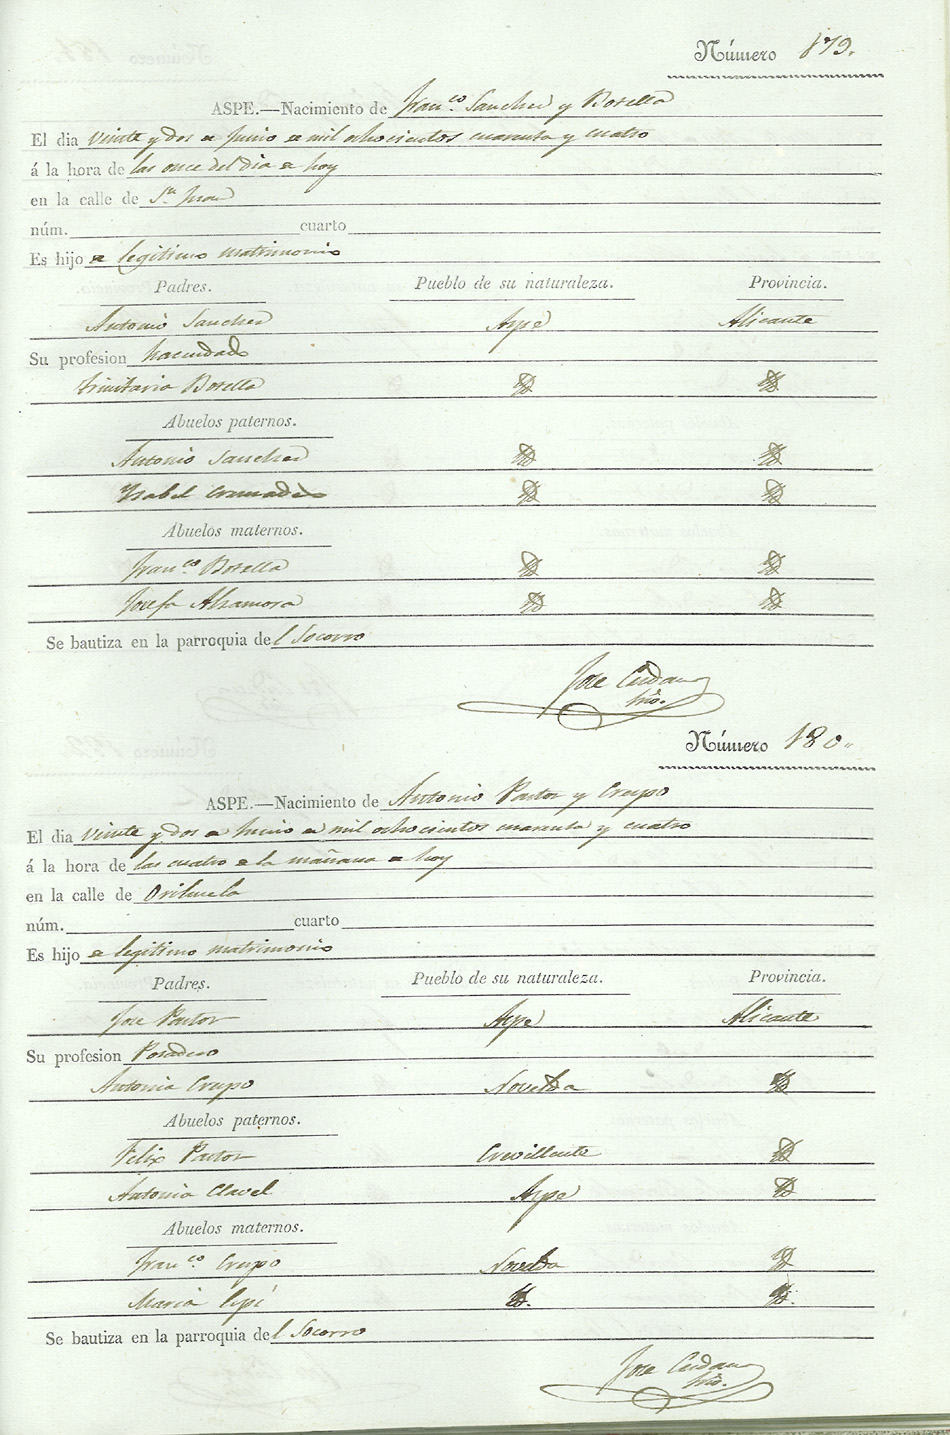 Número 179.
ASPE.—Nacimiento de Fran.co Sanchez y Botella
El dia veinte y dos de Junio de mil ochocientos cuarenta y cuatro
á la hora de las once del dia de hoy
en la calle de Sn. Juan
núm. cuarto
Es hijo de legitimo matrimonio
Padres. Pueblo de su naturaleza. Provincia.
Antonio Sanchez Aspe Alicante
Su profesion hacendado
Trinitaria Botella
Abuelos paternos.
Antonio Sanchez
Ysabel Cremades
Abuelos maternos.
Fran.co Botella
Josefa Alzamora
Se bautiza en la parroquia del Socorro
Jose Cerdan
Número 180.
ASPE.—Nacimiento de Antonio Pastor y Crespo
El dia veinte y dos de Junio de mil ochocientos cuarenta y cuatro
á la hora de las cuatro de la mañana de hoy
en la calle de Orihuela
núm. cuarto
Es hijo de legitimo matrimonio
Padres. Pueblo de su naturaleza. Provincia.
Jose Pastor Aspe Alicante
Su profesion Posadero
Antonia Crespo Novelda
Abuelos paternos.
Felix Pastor Crevillente
Antonia Clavel Aspe
Abuelos maternos.
Fran.co Crespo Novelda
Maria
Se bautiza en la parroquia del Socorro
Jose Cerdan